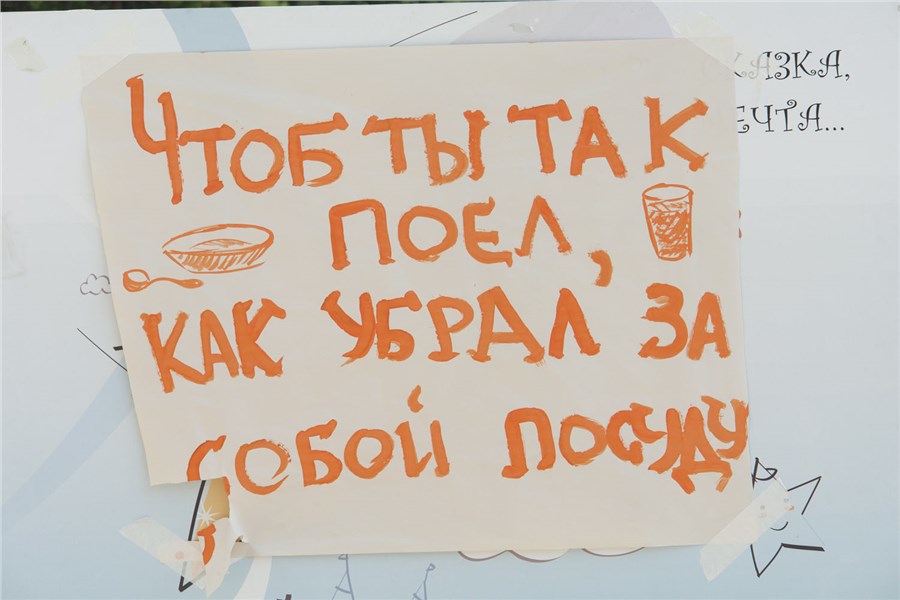 КАЗКА,
ЕЧТА...
ЧТОБ ТЫ ТАК
ПОЕЛ,
КАК УБРАЛ ЗА
СОБОЙ ПОСУДУ